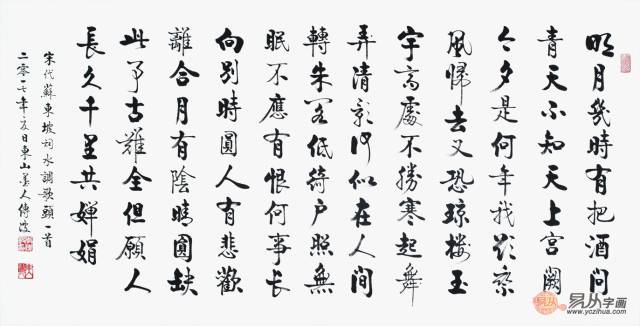 明月幾時有把酒問
青天不知天上宮闕
今夕是何年我欲乘
風歸去又恐瓊樓玉
宇高處不勝寒起舞
弄清影何似在人間
轉朱閣低綺戶照無
眠不應有恨何事長
向別時圓人有悲歡
離合月有陰晴圓缺
此事古難全但願人
長久千里共嬋娟
宋代蘇東坡詞水調歌頭一首
二零一七年夏日東山人傳波
易从字画
www.yczihua.com